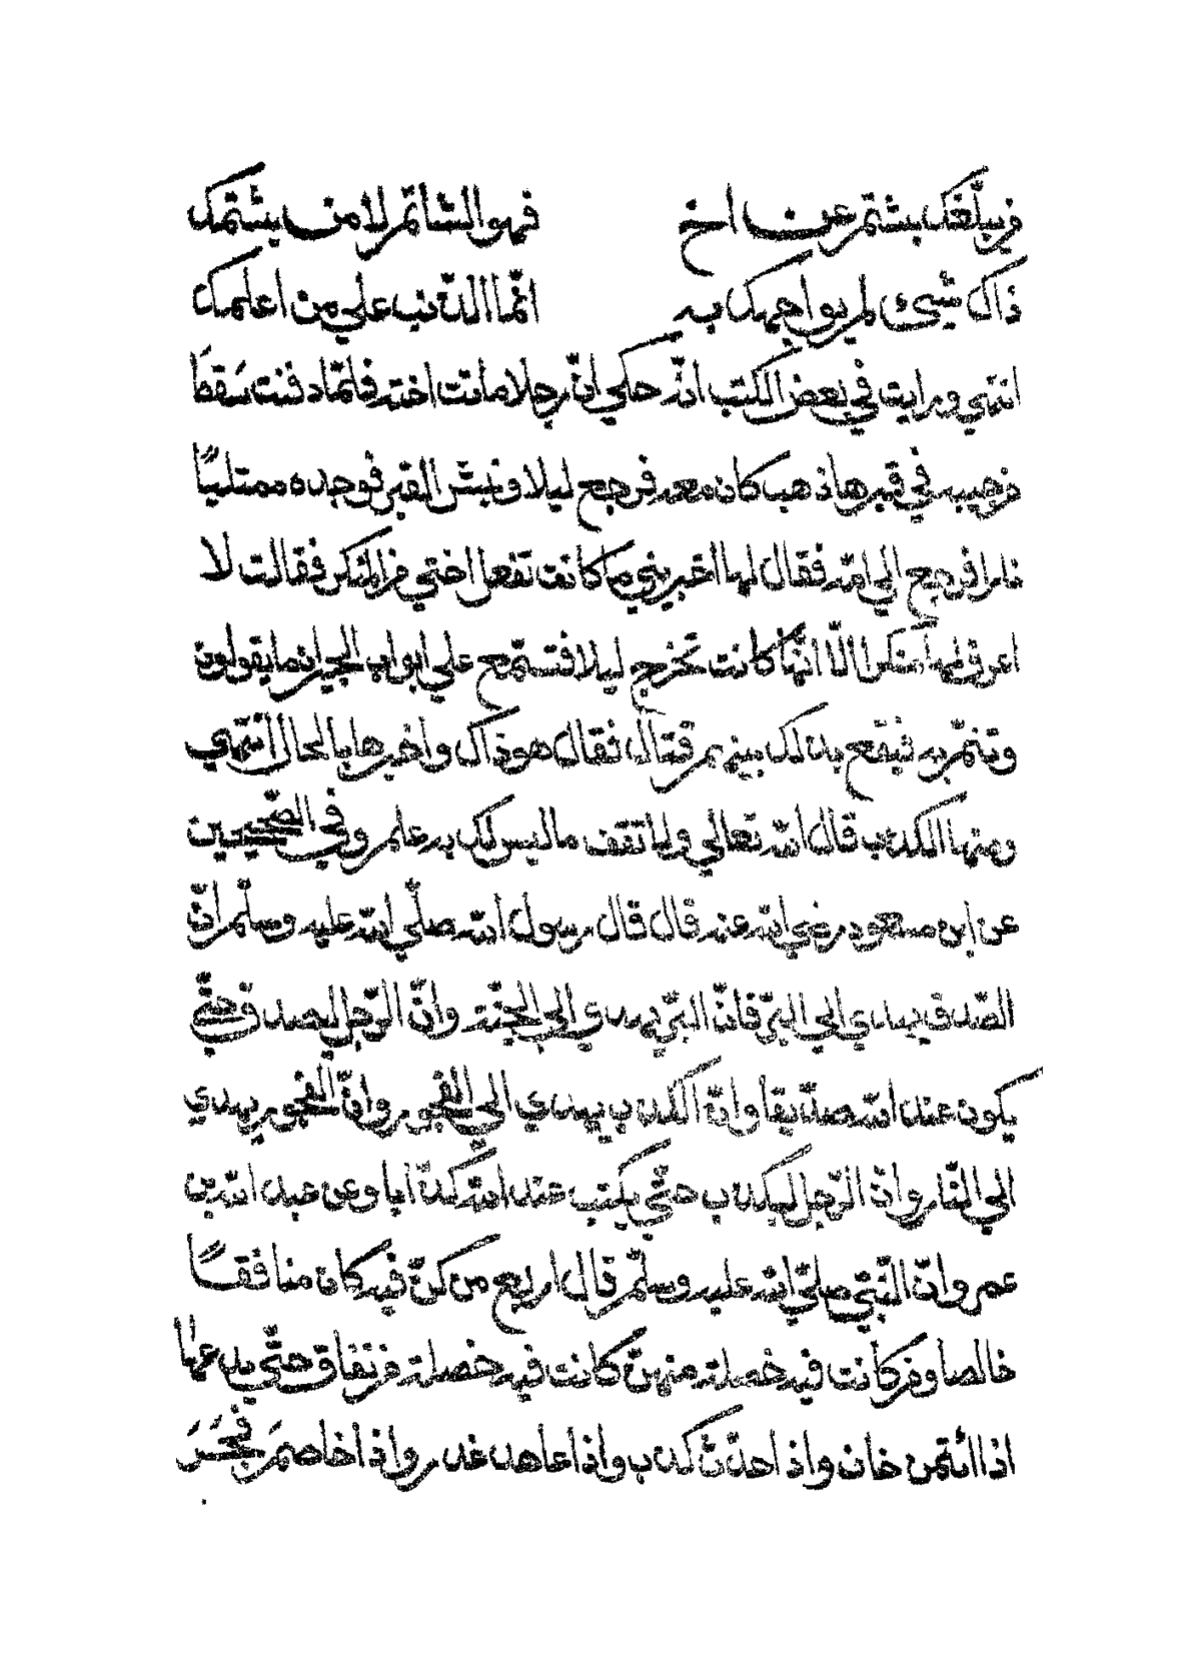 من يبلغك بشتم عن اخ فهو الشاتم لا من يشتمك
ذاك شيئ لم يواجهك به انما الذنب علي من اعلمك
انتهي ورايت في بعض الكتب انه حكي ان رجلا ماتت اخته فلما دفنت سقط
في قبرها ذهب كان معه فرجع ليلا ونبش القبر فوجده ممتليًا
نارا فرجع الي امه فقال لها اخبريني ما كانت تفعل اختي من المنكر فقالت لا
اعرف لها منكرا الّا انها كانت تخرج ليلا فتستمع علي ابواب الجيران ما يقولون
وتنمّ به فيقع بذلك بينهم قتال فقال هو ذاك واخبرها بالحال انتهي
ومنها الكذب قال الله تعالي ولا تقف ما ليس لك به علم وفي الصّحيحين
عن ابن مسعود رضي الله عنه قال قال رسول الله صلّي الله عليه وسلّم انّ
الصّدق يهدي الي البرّ فانّ البرّ يهدي الي الجنّة وانّ الرّجل ليصدق حتّي
يكون عند الله صدّيقا وانّ الكذب يهدي الي الفجور وانّ الفجور يهدي
الي النّار وانّ الرّجل ليكذب حتّي يكتب عند الله كذّابا وعن عبد الله بن
عمر وانّ النّبيّ صلّي الله عليه وسلّم قال اربع من كنّ فيه كان منافقًا
خالصا ومن كانت فيه خصلة منهنّ كانت فيه خصلة من نفاق حتّي يدعها
اذا ائتمن خان واذا حدّث كذب واذا عاهد غدر واذا خاصم فجر